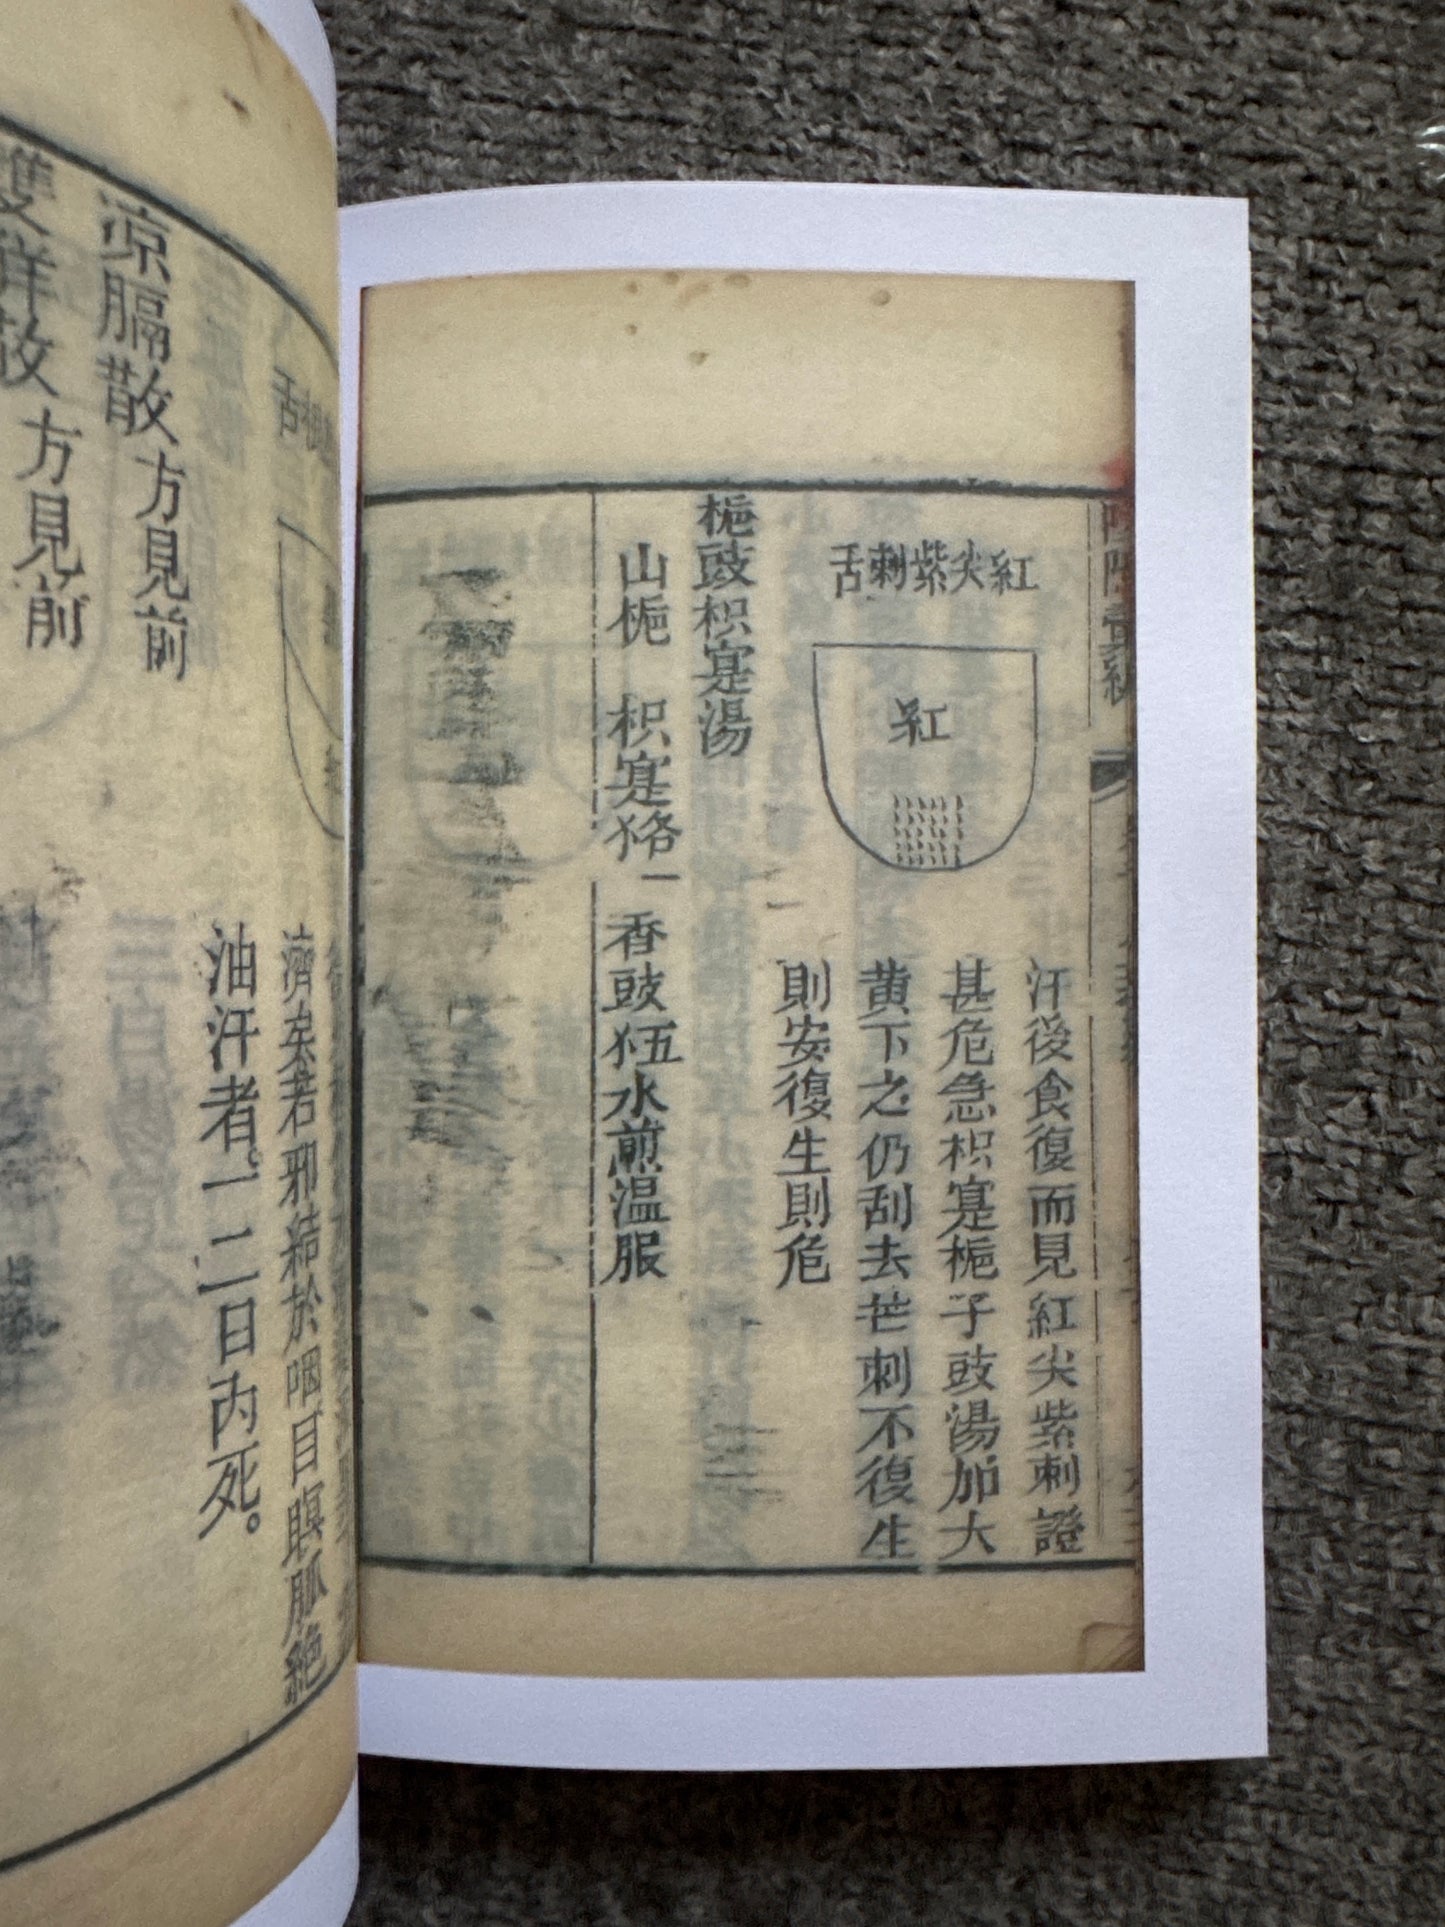 紅尖紫刺舌
紅
汗後食復而見紅尖紫刺證
甚危急枳寔梔子豉湯加大
黄下之仍刮去芒刺不復生
則安復生則危
梔豉枳寔湯
山梔 枳寔 香豉 水煎温服
濟矣若邪結於咽目瞑脈絶
油汗者一二日内死。
涼膈散 方見前
雙解散 方見前